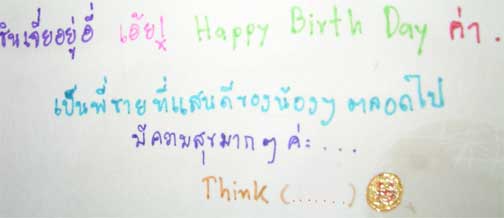 ซินเจียยู่อี่ เอ้ย! Happy Birth Day ค่า.
เป็นพี่ชายที่แสนดีของน้องๆ ตลอดไป
มีความสุขมากๆ ค่ะ...
Think (.......)